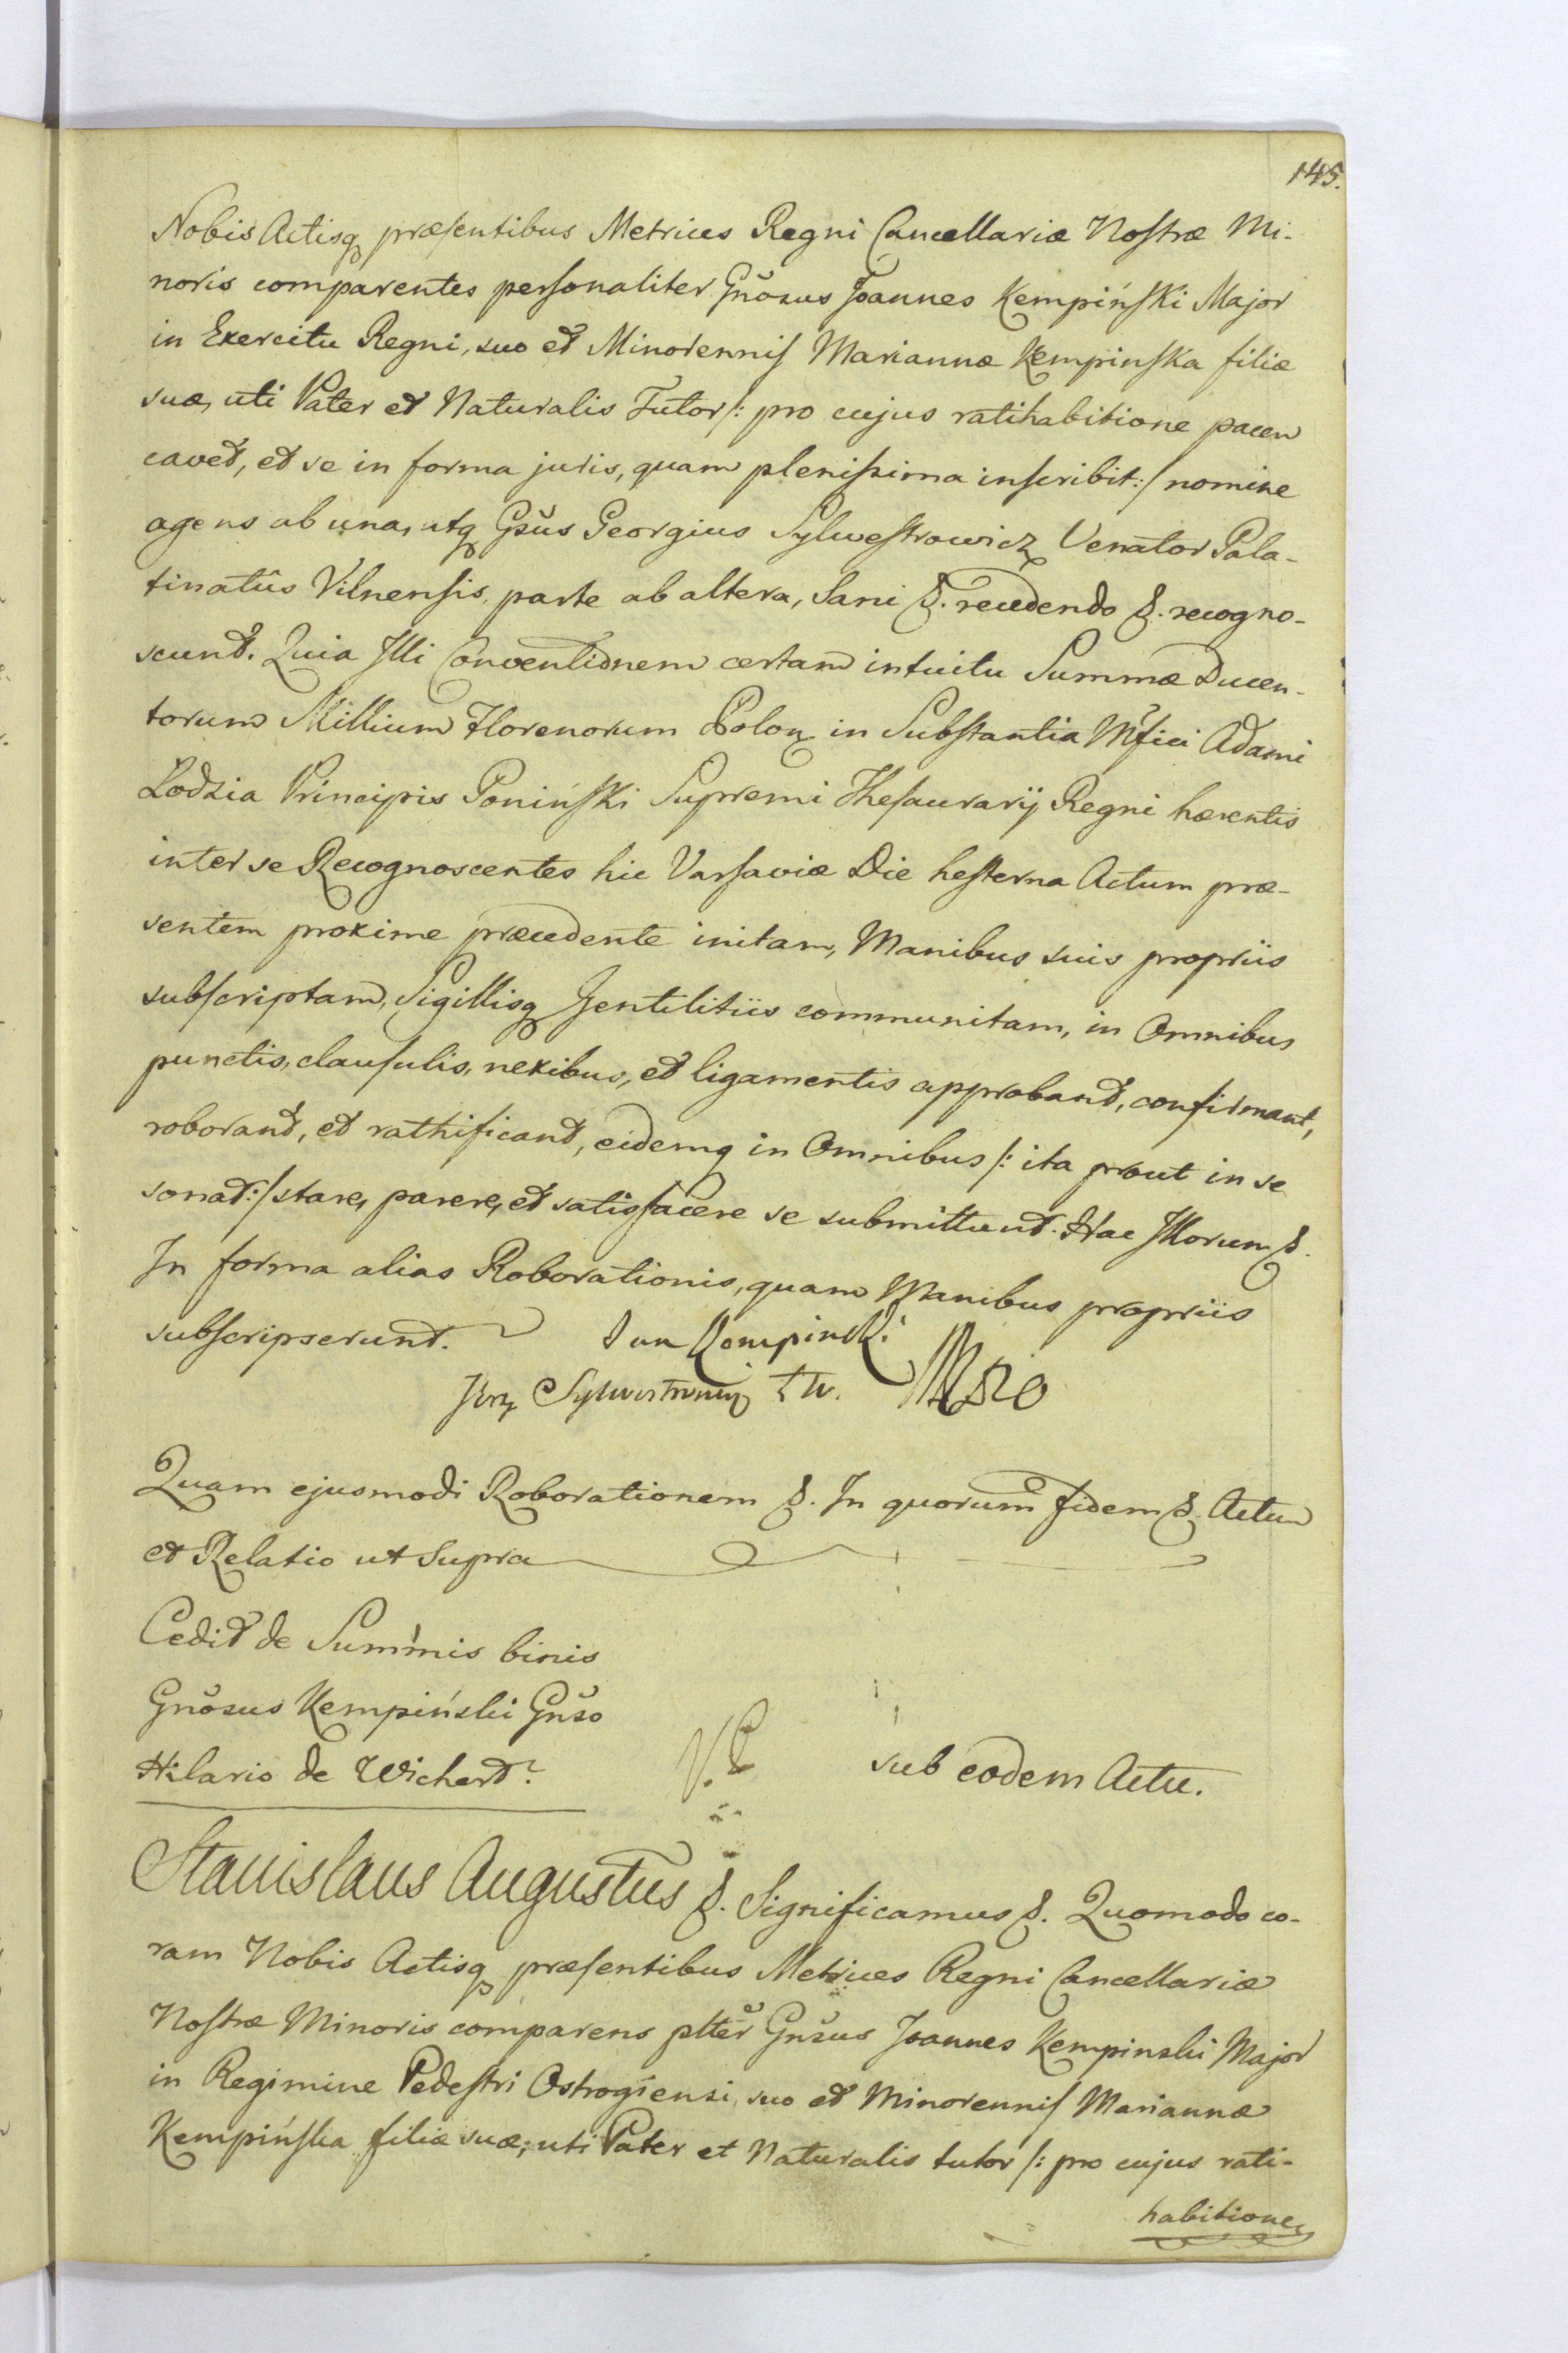 145.
Nobis Actisq præsentibus Metrices Regni Cancellariæ Nostræ Mi-
noris comparentes personaliter Gnõsus Joannes Kempiński Major
in Exercitu Regni, suo et Minorennis Mariannæ Kempinska filiæ
suæ, uti Pater et Naturalis Tutor /: pro cujus ratihabitione pacem
cavet, et se in forma juris, quam plenissima inscribit :/ nomine
agens ab una, atq Gsũs Georgius Sylwestrowicz Venator Pala-
tinatûs Vilnensis, parte ab altera, Sani &. recedendo &. recogno-
scunt. Quia Illi Conventionem certam intuitu Summæ Ducen-
torum Millium Florenorum Polon in Substantia Mfici Adami
Lodzia Principis Poniński Supremi Thesaurarij Regni hærentis
inter se Recognoscentes hic Varsaviæ Die hesterna Actum præ-
sentem proxime præcedente initam, Manibus suis propriis
subscriptam, Sigillisq Gentilitiis communitam, in Omnibus
punctis, clausulis, nexibus, et ligamentis approbant, confirmant,
roborant, et rathificant, eidemq in Omnibus /: ita prout in se
sonat :/ stare, parere, et satisfacere se submittunt. Hac Illorum &.
In forma alias Roborationis, quam Manibus propriis
subscripserunt. Jan Kempinski
Jerzy Sylwestrowicz Ł W.
Quam ejusmodi Roborationem &. In quorum fidem &. Actum
et Relatio ut Supra
Cedit de Summis binis
Gnõsus Kempiński Gnšo
Hilario de Wichert.
sub eodem Actu.
Stanislaus Augustus &. Significamus &. Quomodo co-
ram Nobis Actisq præsentibus Metrices Regni Cancellariæ
Nostræ Minoris comparens pltěr Gnšus Joannes Kempinski Major
in Regimine Pedestri Ostrogiensi, suo et Minorennis Mariannæ
Kempińska filiæ suæ, uti Pater et Naturalis tutor /: pro cujus rati-
habitione